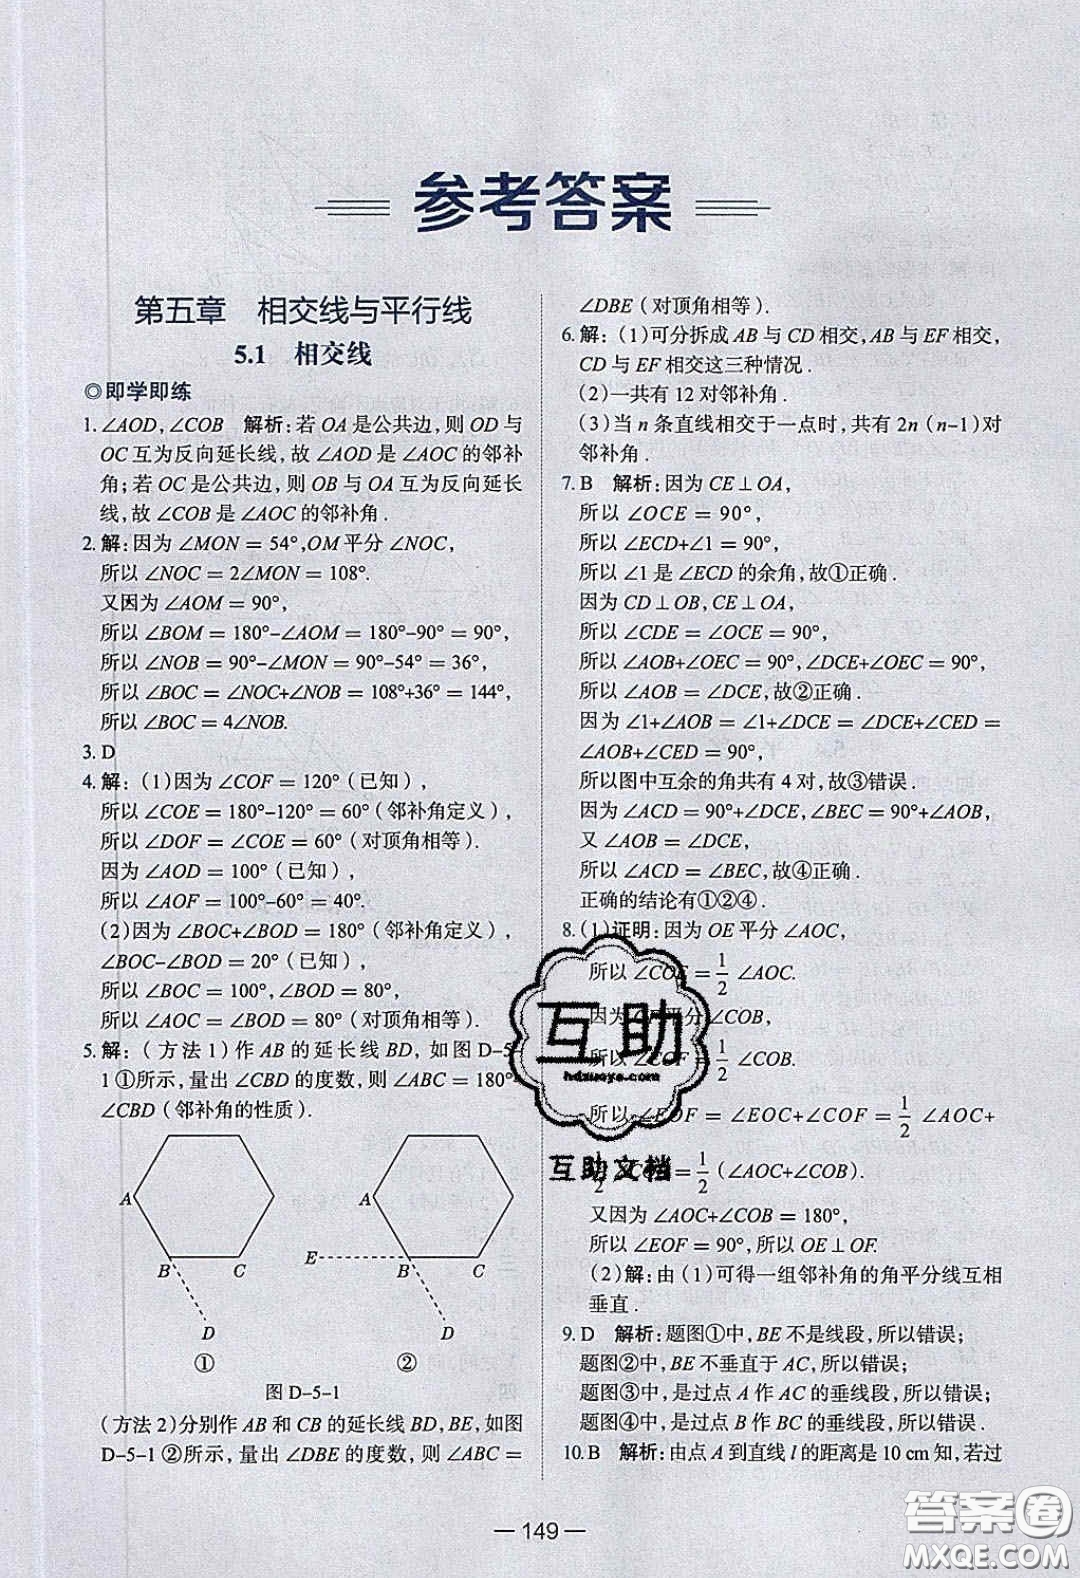 参考答案
第五章 相交线与平行线
5.1 相交线
◎即学即练
1. ∠AOD,∠COB 解析:若 OA 是公共边,则 OD 与
OC 互为反向延长线,故 ∠AOD 是 ∠AOC 的邻补
角;若 OC 是公共边,则 OB 与 OA 互为反向延长
线,故 ∠COB 是 ∠AOC 的邻补角.
2. 解:因为 ∠MON = 54°,OM平分 ∠NOC,
所以 ∠NOC = 2∠MON = 108°.
又因为 ∠AOM = 90°,
所以 ∠BOM = 180°-∠AOM = 180°-90° = 90°,
所以 ∠NOB = 90°-∠MON = 90°-54° = 36°,
所以 ∠BOC = ∠NOC+∠NOB = 108°+36° = 144°,
所以 ∠BOC = 4∠NOB.
3. D
4. 解:(1)因为 ∠COF = 120°(已知),
所以 ∠COE = 180°-120° = 60°(邻补角定义),
所以 ∠DOF = ∠COE = 60°(对顶角相等).
因为 ∠AOD = 100°(已知),
所以 ∠AOF = 100°-60° = 40°.
(2)因为 ∠BOC+∠BOD = 180°(邻补角定义),
∠BOC-∠BOD = 20°(已知),
所以 ∠BOC = 100°,∠BOD = 80°,
所以 ∠AOC = ∠BOD = 80°(对顶角相等).
5. 解:(方法1)作 AB 的延长线 BD,如图 D-5-
1 ①所示,量出 ∠CBD 的度数,则 ∠ABC = 180°-
∠CBD(邻补角的性质).
A B C D
①
A E B C D
②
图 D-5-1
(方法 2)分别作 AB 和 CB 的延长线 BD,BE,如图
D-5-1 ②所示,量出 ∠DBE 的度数,则 ∠ABC =
∠DBE(对顶角相等).
6. 解:(1)可分拆成 AB 与 CD 相交,AB 与 EF 相交,
CD 与 EF 相交这三种情况.
(2)一共有 12 对邻补角.
(3)当 n 条直线相交于一点时,共有 2n(n-1)对
邻补角.
7. B 解析:因为 CE⊥OA,
所以 ∠OCE = 90°,
所以 ∠ECD+∠1 = 90°,
所以 ∠1 是 ∠ECD 的余角,故①正确.
因为 CD⊥OB,CE⊥OA,
所以 ∠CDE = ∠OCE = 90°,
所以 ∠AOB+∠OEC = 90°,∠DCE+∠OEC = 90°,
所以 ∠AOB = ∠DCE,故②正确.
因为 ∠1+∠AOB = ∠1+∠DCE = ∠DCE+∠CED =
∠AOB+∠CED = 90°,
所以图中互余的角共有 4 对,故③错误.
因为 ∠ACD = 90°+∠DCE,∠BEC = 90°+∠AOB,
又 ∠AOB = ∠DCE,
所以 ∠ACD = ∠BEC,故④正确.
正确的结论有①②④.
8. (1)证明:因为 OE 平分 ∠AOC,
所以 ∠COE = 1/2 ∠AOC.
因为 OF平分 ∠COB,
所以 ∠COF = 1/2 ∠COB.
所以 ∠EOF = ∠EOC+∠COF = 1/2 ∠AOC+
1/2 ∠COB = 1/2 (∠AOC+∠COB).
又因为 ∠AOC+∠COB = 180°,
所以 ∠EOF = 90°,所以 OE⊥OF.
(2)解:由(1)可得一组邻补角的角平分线互相
垂直.
9. D 解析:题图①中,BE 不是线段,所以错误;
题图②中,BE 不垂直于 AC,所以错误;
题图③中,是过点 A 作 AC 的垂线段,所以错误;
题图④中,是过点 B 作 BC 的垂线段,所以错误.
10. B 解析:由点 A 到直线 l 的距离是 10 cm 知,若过
— 149 —
互助
hdzuoye.com
互助文档
答案圈
MXQE.COM